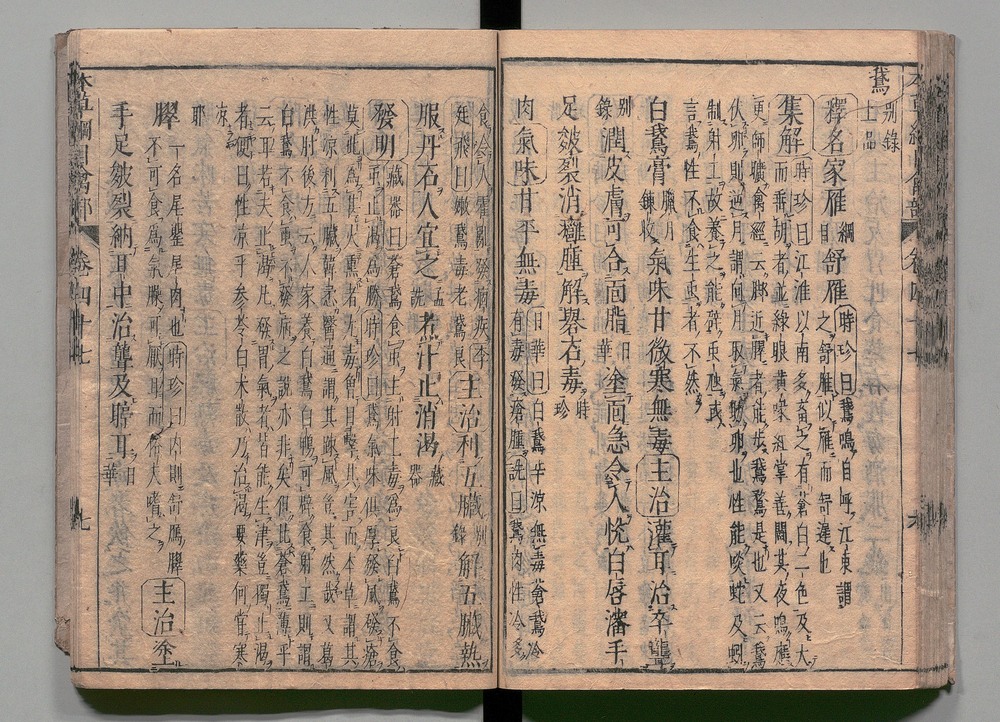 鵞 別錄
上品
釋名家雁 綱目 舒雁 時珍曰鵞鳴自呼江東謂
之舒雁似雁而舒遲也
集解 時珍曰江淮以南多畜之有蒼白二色及大
而垂胡者並綠眼黃喙紅掌善鬭其夜鳴應
更師曠禽經云脚近臎者能步鵞鶩是也又云鵞
伏卵則逆月謂向月取氣助卵也性能啖蛇及蚓
制射工故養之能辟虫虺或
言鵞性不食生虫者不然
白鵞膏 臘月鍊收 氣味甘微寒無毒主治灌耳治卒聾
別錄 潤皮膚可合面脂 日華 塗面急令人悅白唇瀋手
足皴裂消癰腫解礜石毒 時珍
肉氣味甘平無毒 日華曰白鵞辛涼無毒蒼鵞冷
有毒發瘡腫詵曰鵞肉性冷多
食令人霍亂發痼疾李
廷飛曰嫩鵞毒老鵞良 主治利五臟 別錄 解五臟熱
服丹石人宜之 孟詵 煮汁止消渴 藏器
發明 藏器曰蒼鵞食虫主射工毒爲良白鵞不食
虫止渴爲勝時珍曰鵞氣味俱厚發風發瘡
莫此爲甚火熏者尤毒曾目擊其害而本草謂其
性凉利五臟韓 醫通謂其疎風豈其然哉又葛
洪肘後方云人家養白鵞白鴨可辟食射工則謂
白鵞不食虫不發病之說亦非矣但比蒼鵞薄乎
云耳若夫止渴凡發胃氣者皆能生津豈獨止渴
者便曰性凉乎參苓白朮散乃治渴要藥何嘗寒
凉
耶
臎 一名尾罌尾肉也時珍曰內則舒鴈臎
不可食爲氣臊可厭耳而俗夫嗜之 主治塗
手足皴裂納耳中治聾及聤耳 日華
本草綱目禽部 卷四十七 七